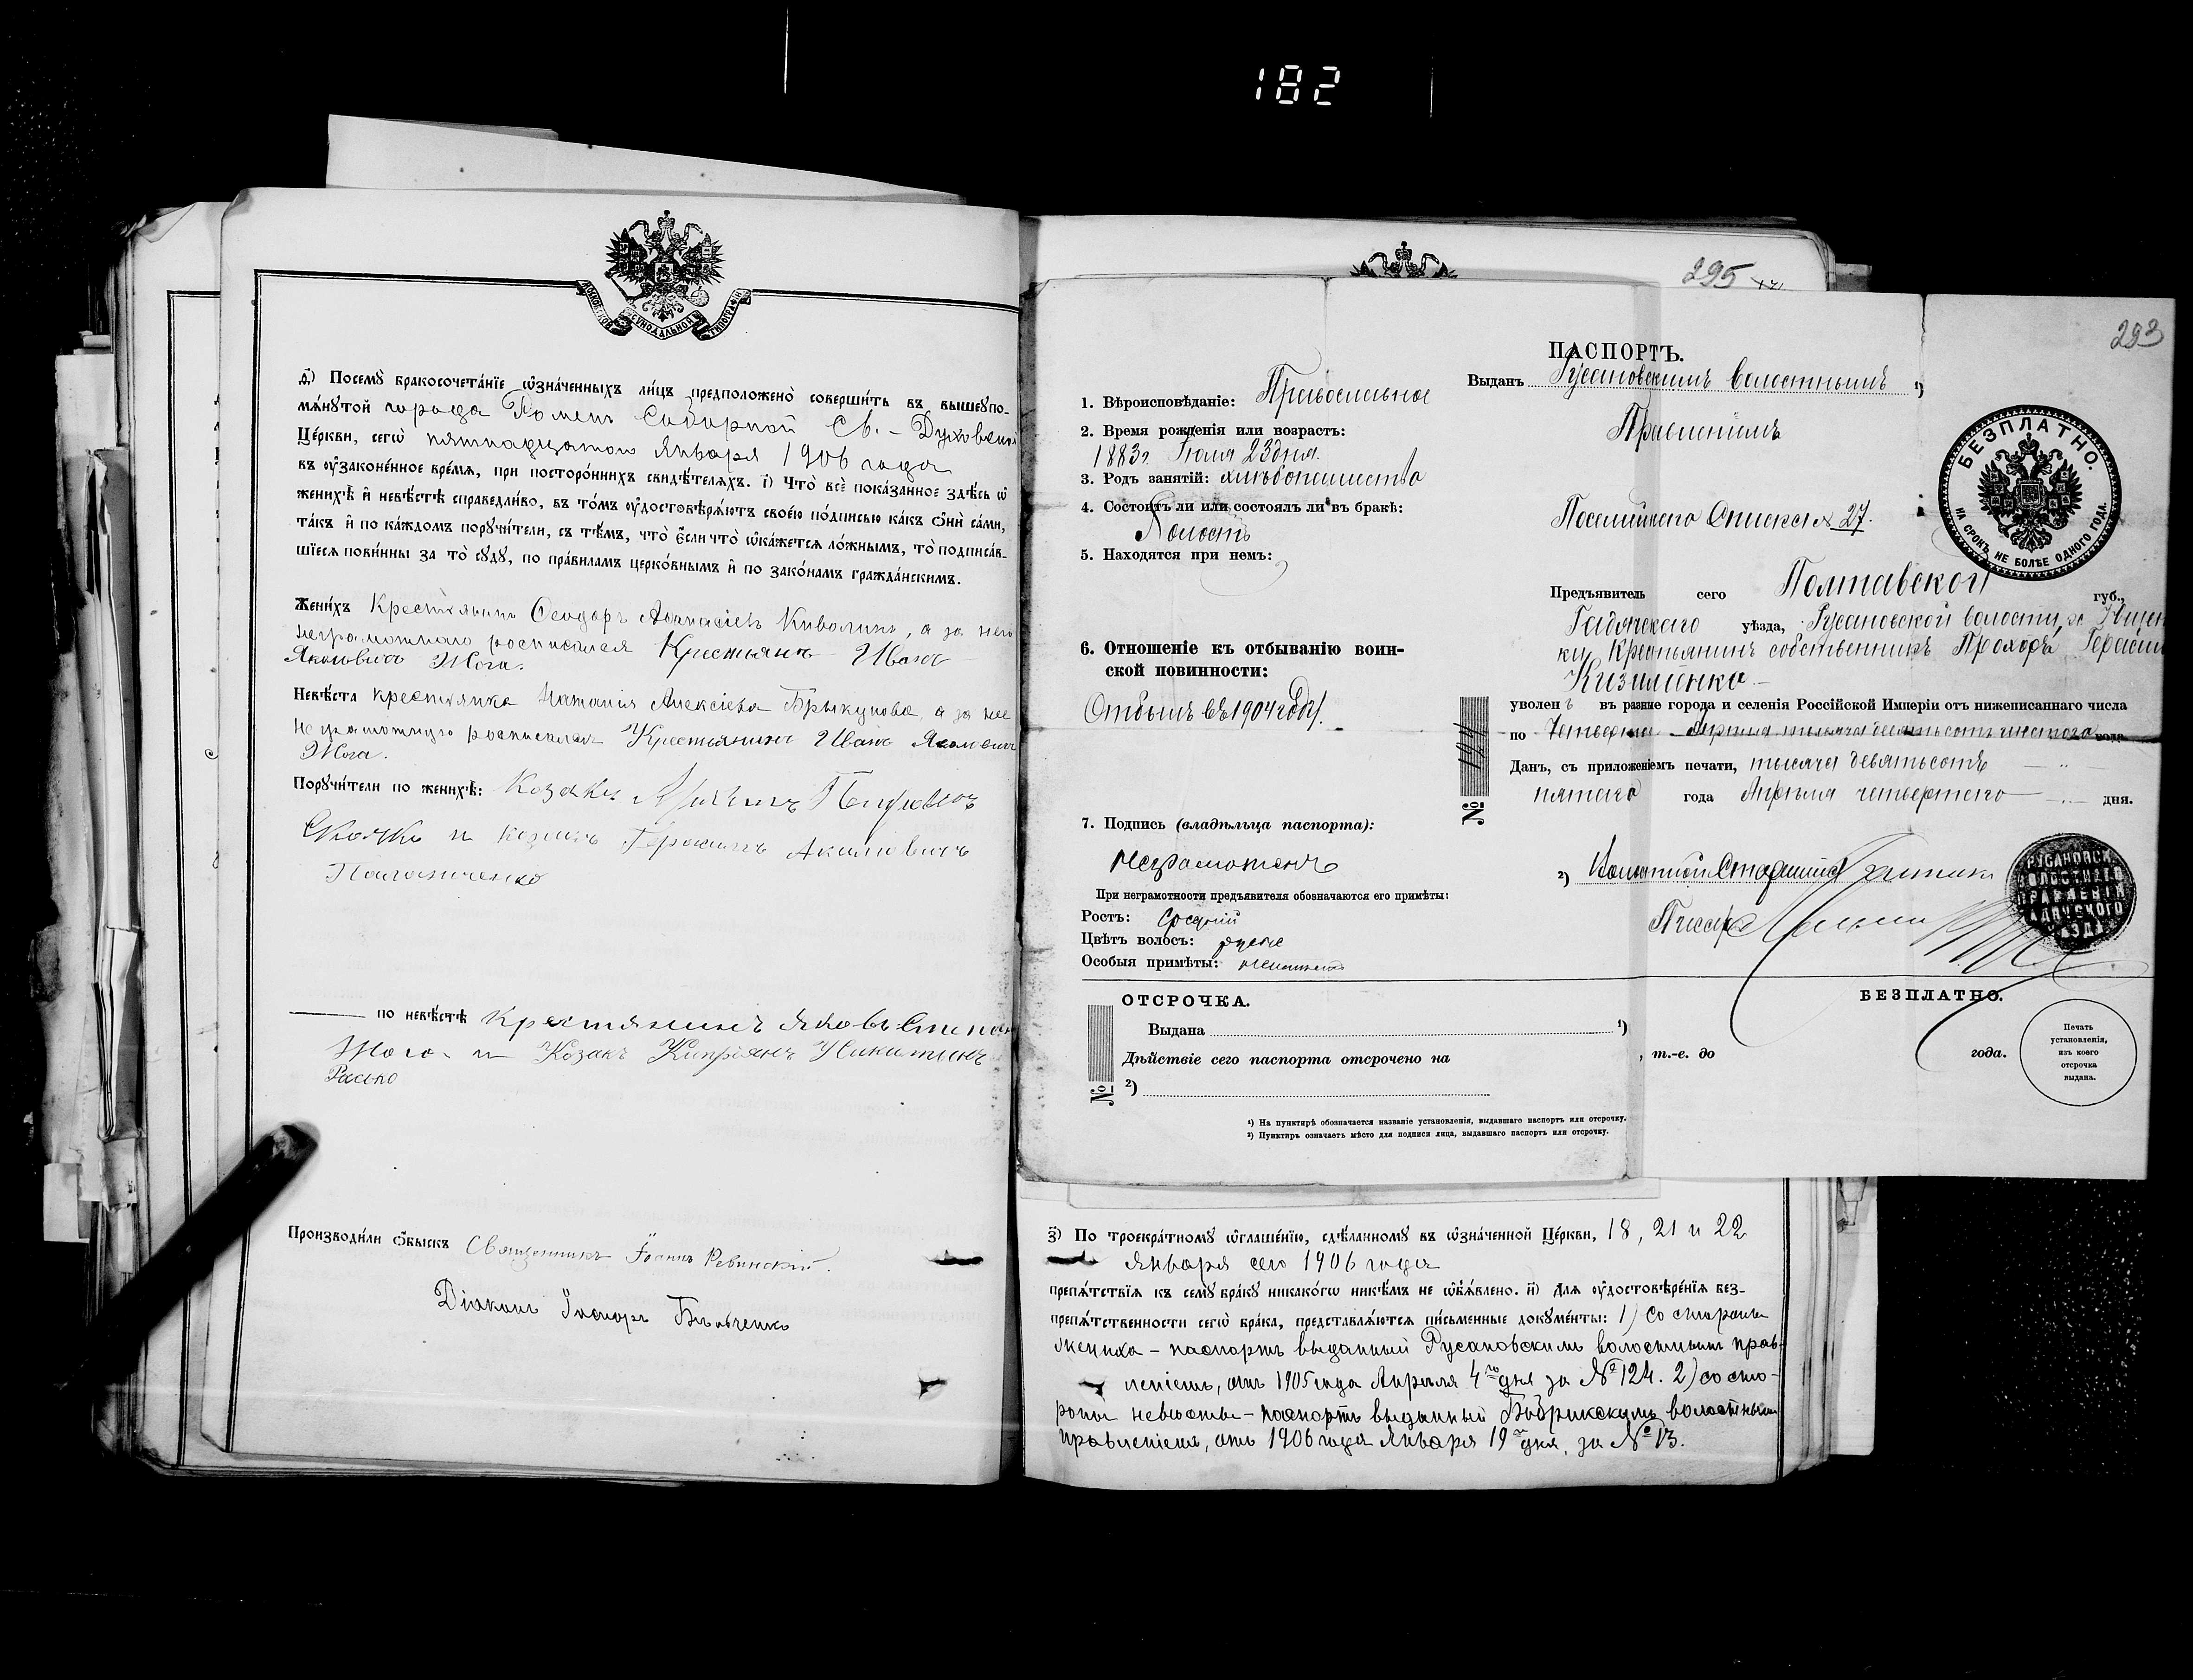 182
МОСКОВСКОЙ СѴНОДАЛЬНОЙ ТИПОГРАФІИ
д҃) Посемꙋ̀ бракосочета́нїе ѡ҆зна́ченныхъ ли́цъ предположено̀ соверши́ть въ вышеꙋпо-
мѧ́нꙋтой города Ромен Соборной Св.-Духовской
Це́ркви, сегѡ̀ пятнадцатого Января 1906 года
въ ᲂу҆зако́ненное вре́мѧ, при посторо́ннихъ свидѣ́телѧхъ. і҃) Что̀ всѐ пока́занное здѣ́сь ѡ҆
женихѣ̀ и҆ невѣ́стѣ справедли́во, въ то́мъ ᲂу҆достовѣрѧ́ютъ свое́ю по́дписью ка́къ ѻ҆нѝ са́ми,
та́къ и҆ по ка́ждомъ порꙋчи́тели, съ тѣ́мъ, что̀ є҆́сли что̀ ѡ҆ка́жетсѧ ло́жнымъ, то̀ подписа́в-
шїесѧ пови́нны за то̀ сꙋдꙋ̀, по пра́виламъ церко́внымъ и҆ по зако́намъ гражда́нскимъ.
Жени́хъ Крестьянинъ Ѳеодоръ Аѳанасіевъ, а за него
неграмотнаго росписался Крестьянинъ Иванъ
Яковлевичъ Жога.
Невѣ́ста крестьянка Наталія Алексіева Брыкунова, а за нее
неграмотную росписался Крестьянинъ Иванъ Яковлевичъ
Жога.
Порꙋчи́тели по женихѣ̀: Козаки
и козакъ Герасимъ Акимовичъ
по невѣ́стѣ крестьянинъ Яковъ Степан
Жога и Козакъ Кипріянъ Никитинъ
Расько
Производи́ли ѻ҆́быскъ Священникъ Іоаннъ Ревинскій.
Діаконъ
295
293
ПАСПОРТЪ.
Выданъ Русановскимъ волостнымъ ¹)
Правленіемъ
Посемейнаго Списка № 27.
БЕЗПЛАТНО.
НА СРОКЪ НЕ БОЛѢЕ ОДНОГО ГОДА.
1. Вѣроисповѣданіе: Православное
2. Время рожденія или возрастъ:
1883 г. Іюля 23 дня.
3. Родъ занятій: хлѣбопашество
4. Состоитъ ли или состоялъ ли въ бракѣ:
Холостъ
5. Находятся при немъ:
6. Отношеніе къ отбыванію воин-
ской повинности:
Отбылъ въ 1904 году.
7. Подпись (владѣльца паспорта):
Неграмотенъ
При неграмотности предъявителя обозначаются его примѣты:
Ростъ: Средній
Цвѣтъ волосъ: русые
Особыя примѣты:
Предъявитель сего Полтавской губ.,
Гадячскаго уѣзда, Русановской волости,
крестьянинъ собственникъ Прохоръ Герасим
уволенъ въ разные города и селенія Россійской Имперіи отъ нижеписаннаго числа
по Четвертое Апрѣля тысяча девятьсотъ шестого года
Данъ, съ приложеніемъ печати, тысяча девятьсотъ
пятаго года Апрѣля четвертаго дня.
№ 124
²) Волостной Старшина
Писарь
РУСАНОВСК. ВОЛОСТНОГО ПРАВЛЕНІЯ ГАДЯЧСКОГО УѢЗДА
ОТСРОЧКА.
БЕЗПЛАТНО.
Выдана ¹)
Дѣйствіе сего паспорта отсрочено на , т.-е. до года.
№ ²)
Печать
установленія,
изъ коего
отсрочка
выдана.
¹) На пунктирѣ обозначается названіе установленія, выдавшаго паспортъ или отсрочку.
²) Пунктиръ означаетъ мѣсто для подписи лица, выдавшаго паспортъ или отсрочку.
з҃) По троекра́тномꙋ ѡ҆глаше́нїю, сдѣ́ланномꙋ въ ѡ҆зна́ченной Це́ркви, 18, 21 и 22
Января сего 1906 года
препѧ́тствїѧ къ семꙋ̀ бра́кꙋ никако́гѡ никѣ́мъ не ѡ҆б̾ѧ́влено. и҃) Длѧ ᲂу҆достовѣре́нїѧ без-
препѧ́тственности сегѡ̀ бра́ка, представлѧ́ютсѧ пи́сьменные докꙋме́нты: 1) со стороны
жениха – паспортъ выданный Русановскимъ волостнымъ прав-
леніемъ, отъ 1905 года Апрѣля 4го дня за № 124. 2) со сто-
роны невѣсты – паспортъ выданный Бобрикскимъ волостнымъ
правленіемъ, отъ 1906 года Января 19го дня, за № 13.